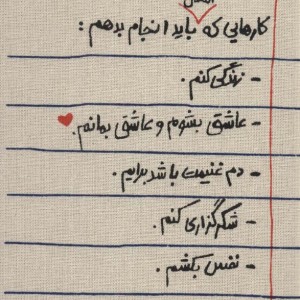 کارهایی که باید انجام بدهم :
- زندگی کنم.
- عاشق بشوم و عاشق بمانم.
- دم غنیمت باشد برایم.
- شکرگزاری کنم.
- نفس بکشم.